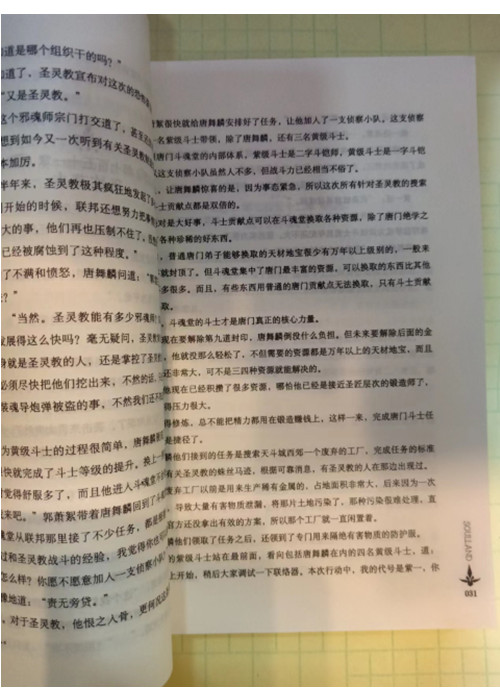 道是哪个组织干的吗？"
道了，圣灵教宣布对这次的恐怖
"又是圣灵教。"
这个邪魂师宗门打交道了，甚至还
想到如今又一次听到有关圣灵教
本加厉。
半年来，圣灵教极其疯狂地发起了
开始的时候，联邦还想努力把事
大的事，他们再也压制不住了。
已经被腐蚀到了这种程度。"
了不满和愤怒，唐舞麟问道："
？"
"当然。圣灵教能有多少邪魂师
发展得这么快吗？毫无疑问，圣灵教
身就是圣灵教的人，还是掌控了圣灵
必须尽快把他们挖出来，不然的话，
装魂导炮弹被盗的事，不然我们还不
为黄级斗士的过程很简单，唐舞麟
快就完成了斗士等级的提升，换上
觉得舒服多了，而且他进入斗魂堂
起来吧。"郭萧絮带着唐舞麟回到了
堂从联邦那里接了不少任务，都是
过和圣灵教战斗的经验，我觉得你
怎么样？你愿不愿意加入一支侦察小
豫地道："责无旁贷。"
，对于圣灵教，他恨之入骨，更何况
絮很快就给唐舞麟安排好了任务，让他加入了一支侦察小队。这支侦察
名紫级斗士带领，除了唐舞麟，还有三名黄级斗士。
唐门斗魂堂的内部体系，紫级斗士是二字斗铠师，黄级斗士是一字斗铠
这支侦察小队虽然人不多，但战斗力已经相当不俗了。
，让唐舞麟惊喜的是，因为事态紧急，所以这次所有针对圣灵教的搜索
士贡献点都是双倍的。
对是大好事，斗士贡献点可以在斗魂堂换取各种资源，除了唐门绝学之
各种珍稀的好东西。
，普通唐门弟子能够换取的天材地宝很少有万年以上级别的，一般来
就封顶了。但斗魂堂集中了唐门最丰富的资源，可以换取的东西比其他
多很多。而且，有些东西用普通的唐门贡献点无法换取，只有斗士贡献
取。
，斗魂堂的斗士才是唐门真正的核心力量。
现在要解除第九道封印，唐舞麟倒没什么负担。但未来要解除后面的金
，他就没那么轻松了，不但需要的资源都是万年以上的天材地宝，而且
还非常大，可不是三四种资源就能解决的。
他现在已经积攒了很多资源，哪怕他已经是接近圣匠层次的锻造师了，
得压力很大。
得修炼，总不能把精力都用在锻造赚钱上，这样一来，完成唐门斗士任
是捷径了。
麟他们接到的任务是搜索天斗城西郊一个废弃的工厂，完成任务的标准
有关圣灵教的蛛丝马迹，根据可靠消息，有圣灵教的人在那边出现过。
废弃工厂以前是用来生产稀有金属的，占地面积非常大，后来因为一次
，导致大量有害物质泄漏，将那片土地污染了，那种污染很难处理，直
官方还没拿出有效的方案，所以那个工厂就一直闲置着。
麟他们领取了任务之后，还领到了专门用来隔绝有害物质的防护服。
的紫级斗士站在最前面，看向包括唐舞麟在内的四名黄级斗士，道：
上开始，稍后大家调试一下联络器。本次行动中，我的代号是紫一，你
SOULLAND
031